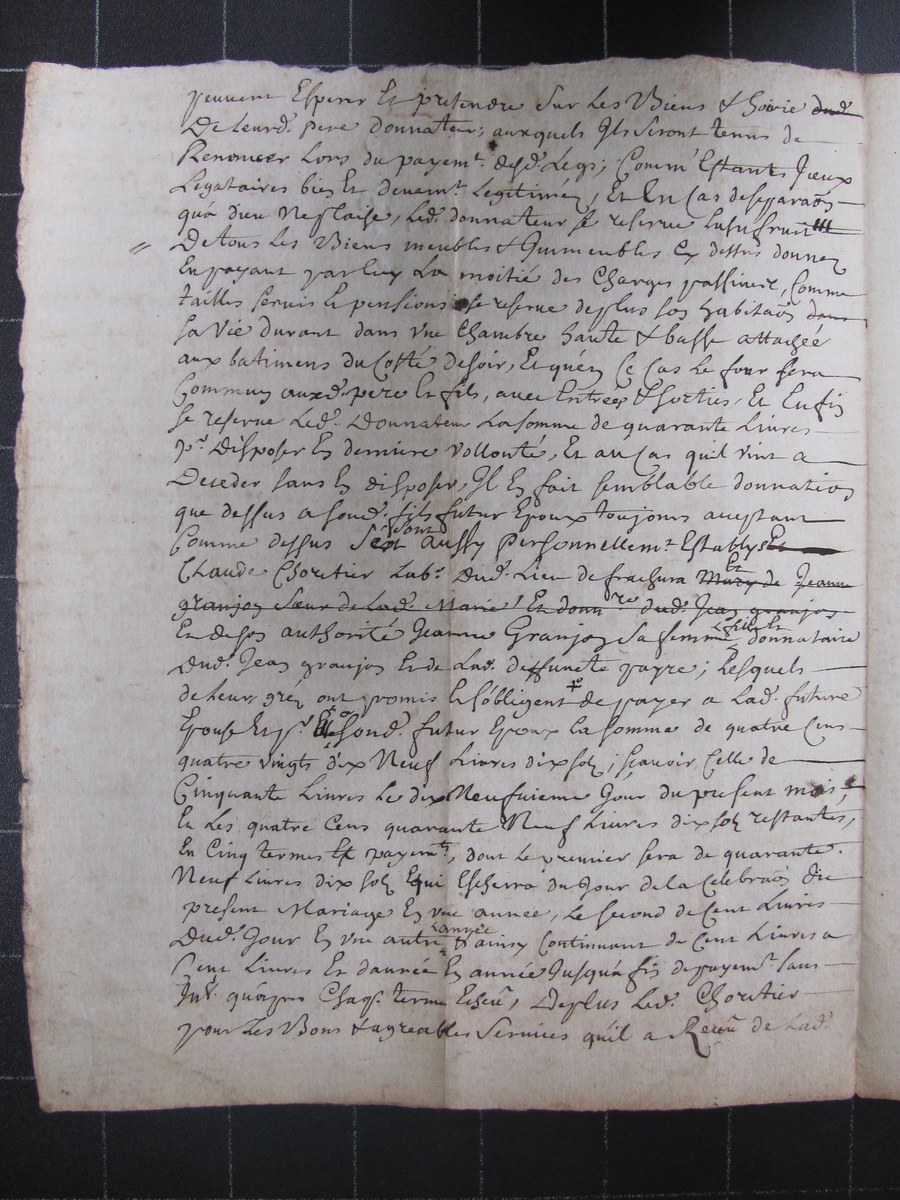 peuvent Esperer Et pretendre sur Les Biens & hoirie dud.
De leurd. pere donnateur; auxquels Ils seront tenus de
Renoncer Lors du payemt. desd. Legs; Comm' Estants Iceux
Legataires bien Et deuemt. Legitimez, Et En cas deseparaon
qu'a dieu Neplaise, Led. donnateur se reserve Lusufruit
De tous Les Biens meubles & Immeubles cy dessus donnez
En payant par luy La moitié des Charges passives, Comme
tailles servis & pensions se reserve deplus son habitaon dans
sa vie durant dans vne Chambre haute & basse attachée
aux batimens du Costé desoir, Et qu'en Ce Cas Le four sera
Commun auxd. pere Et fils, avec Entrées & sorties, Et Enfin
se reserve Led. Donnateur La somme de quarante Livres
pr. Disposer En derniere vollonté, Et au Cas quil vint a
Deceder sans En disposer, Il En fait semblable donnation
que dessus a sond. fils futur Epoux toujours acceptant
Comme dessus sont aussy personnellemt. Establys Et
Claude Choritier Labr. Dud. Lieu de frachura Mary de Et Jeanne
granjon sœur de Lad. Marie Et donnre dud. Jean granjon
Et de son authorité Jeanne Granjon sa femme, fille Et donnataire
Dud. Jean granjon Et de Lad. deffuncte payre; Lesquels
de leur grez ont promis Et s'obligent de payer a Lad. future
Epouse Et pr. Elle a sond. futur Epoux La somme de quatre Cens
quatre vingts dix Neuf Livres dix sols; sçavoir Celle de
Cinquante Livres Le dix Neufuieme Jour du present mois,
Et Les quatre Cens quarante Neuf Livres dix sols restantes,
En Cinq termes Et payemts, dont Le premier sera de quarante
Neuf Livres dix sols Equi Escherra du Jour de la Celebraon du
present Mariage En vne année, Le second de Cent Livres
Dud. Jour En vne autre année & ainsy Continuant de Cent Livres a
Cent Livres Et dannée En année Jusqu'a fin de payemt. sans
Intt. qu'apres Chaqe. terme Escheu, Deplus Led. Choritier
pour Les Bons & agreables Services qu'il a Receu de Lad.